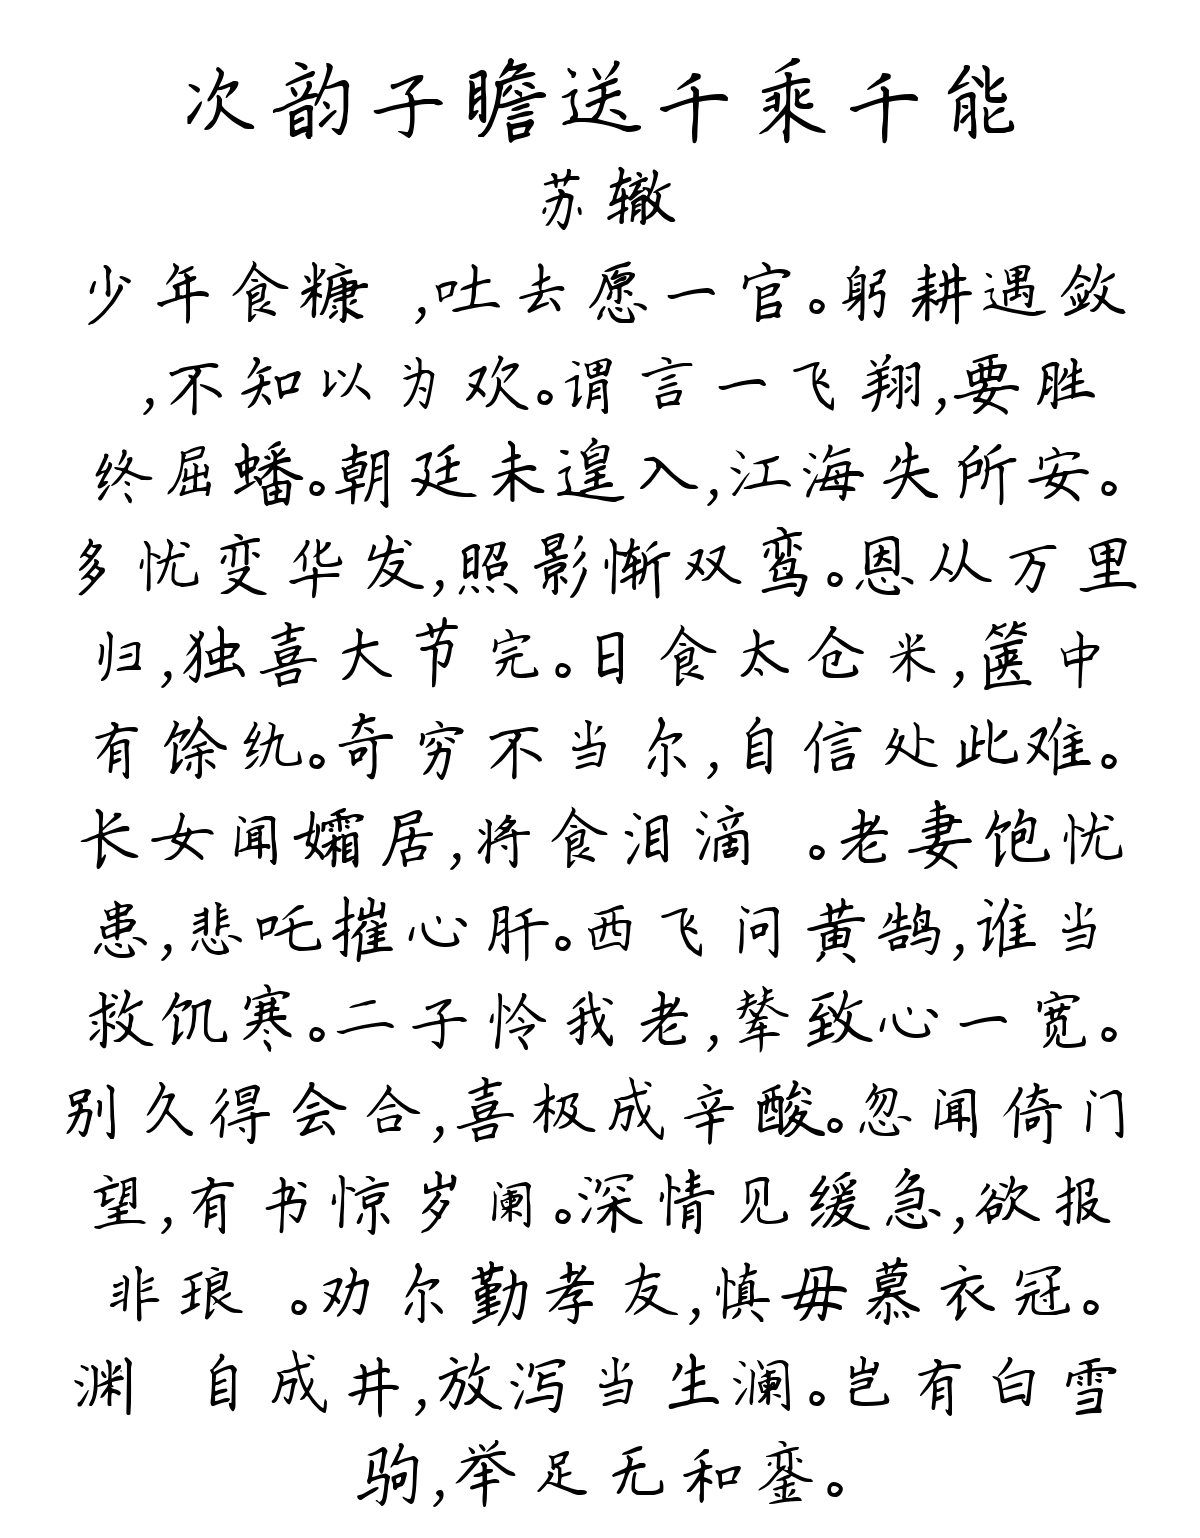 次韵子瞻送千乘千能
苏辙
少年食糠 ,吐去愿一官。躬耕遇敛
,不知以为欢。谓言一飞翔,要胜
终屈蟠。朝廷未遑入,江海失所安。
多忧变华发,照影惭双鸾。恩从万里
归,独喜大节完。日食太仓米,箧中
有馀纨。奇穷不当尔,自信处此难。
长女闻孀居,将食泪滴 。老妻饱忧
患,悲吒摧心肝。西飞问黄鹄,谁当
救饥寒。二子怜我老,辇致心一宽。
别久得会合,喜极成辛酸。忽闻倚门
望,有书惊岁阑。深情见缓急,欲报
非琅 。劝尔勤孝友,慎毋慕衣冠。
渊 自成井,放泻当生澜。岂有白雪
驹,举足无和銮。